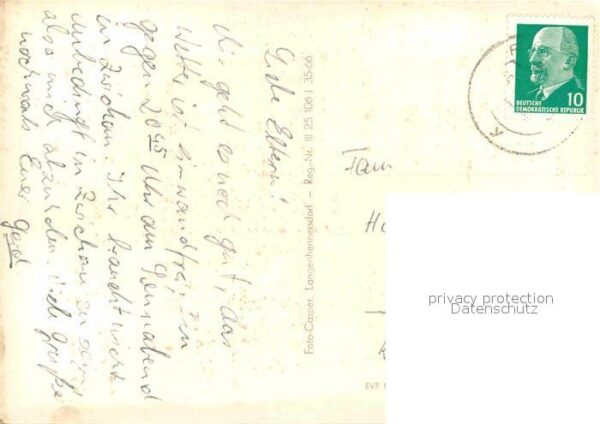 Liebe Eltern!
Mir geht es noch gut, das
Wetter ist einwandfrei, bin
gegen 20 45 Uhr am Sonnabend
in Zwickau. Ihr braucht nicht
unbedingt in Zwickau zu sein
also mich abzuholen. Viele Grüße
nochmals Euer Gerd
Foto-Casper, Langenhennersdorf – Reg.-Nr. III 25 (06) 35 66
EVP
Fam
H
10
DEUTSCHE
DEMOKRATISCHE REPUBLIK
privacy protection
Datenschutz